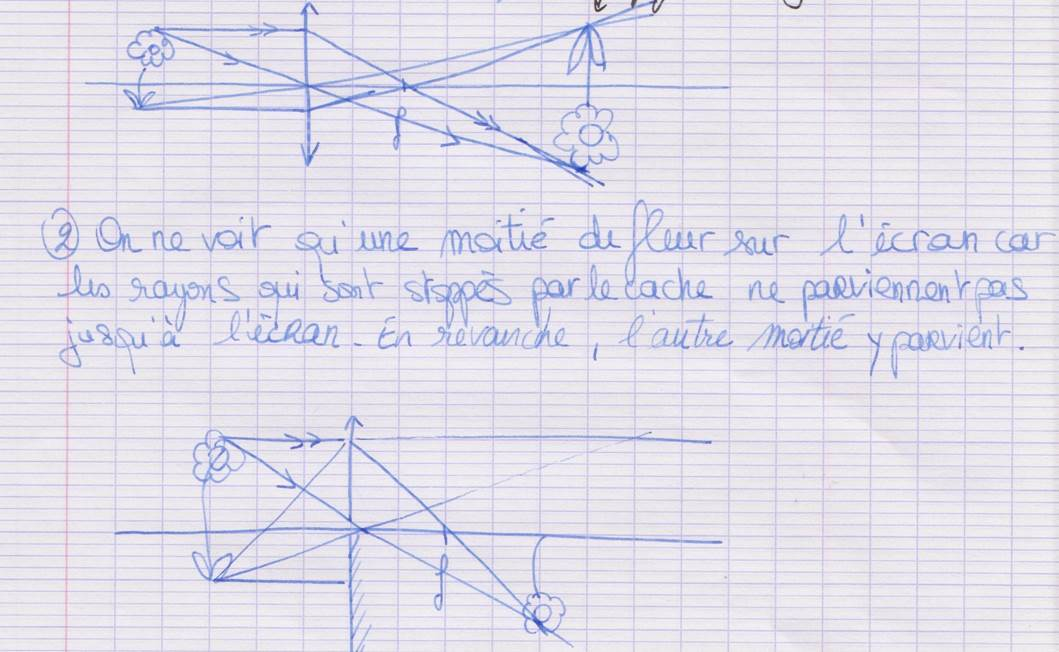 f
② On ne voit qu'une moitié de fleur sur l'écran car
les rayons qui sont stoppés par le cache ne parviennent pas
jusqu'à l'écran. En revanche, l'autre moitié y parvient.
f